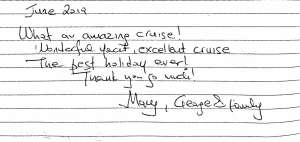 June 2019
What an amazing cruise!
Wonderful yacht, excellent cruise
The best holiday ever!
Thank you so much!
Mary, George & family